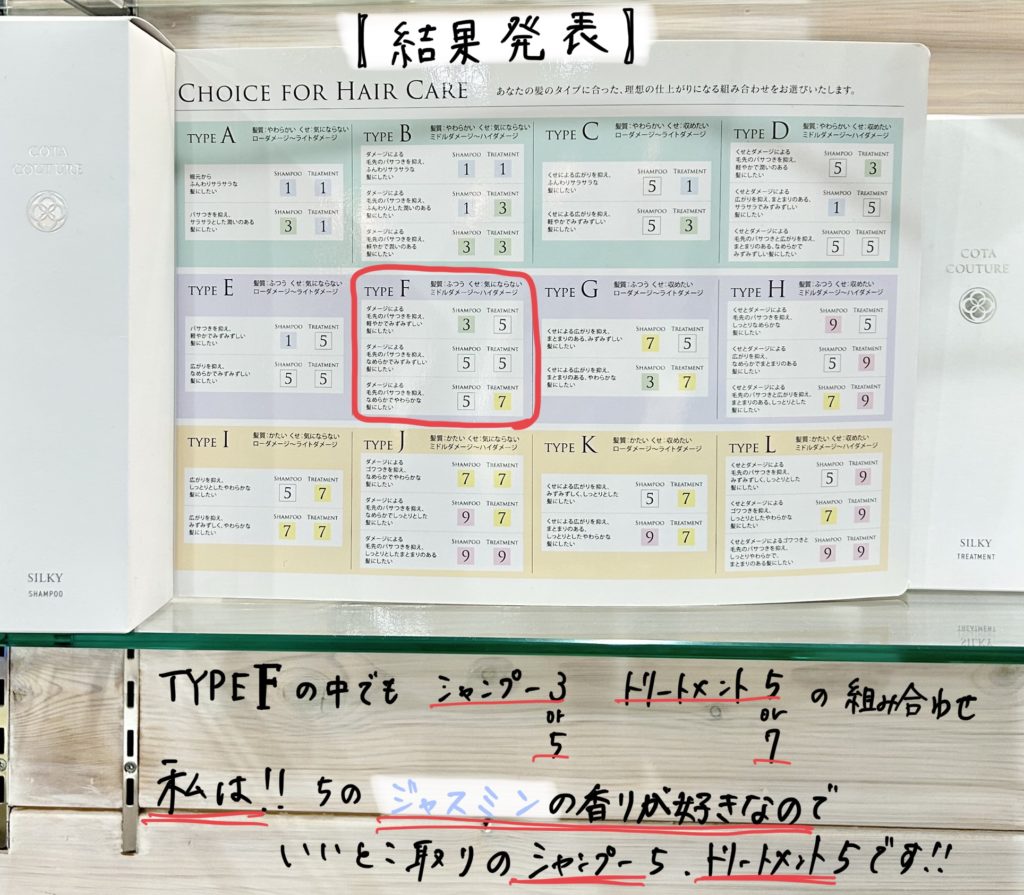 【結果発表】
CHOICE FOR HAIR CARE
あなたの髪のタイプに合った、理想の仕上がりになる組み合わせをお選びいたします。
COTA
COUTURE
SILKY
SHAMPOO
TYPE A
髪質:やわらかい くせ:気にならない
ローダメージ〜ライトダメージ
SHAMPOO TREATMENT
根元から
ふんわりサラサラな
髪にしたい
1 1
パサつきを抑え、
サラサラとした潤いのある
髪にしたい
3 1
TYPE B
髪質:やわらかい くせ:気にならない
ミドルダメージ〜ハイダメージ
SHAMPOO TREATMENT
ダメージによる
毛先のパサつきを抑え、
ふんわりサラサラな
髪にしたい
1 1
ダメージによる
毛先のパサつきを抑え、
ふんわりとした潤いのある
髪にしたい
1 3
ダメージによる
毛先のパサつきを抑え、
軽やかで潤いのある
髪にしたい
3 3
TYPE C
髪質:やわらかい くせ:収めたい
ローダメージ〜ライトダメージ
SHAMPOO TREATMENT
くせによる広がりを抑え、
ふんわりサラサラな
髪にしたい
5 1
くせによる広がりを抑え、
軽やかでみずみずしい
髪にしたい
5 3
TYPE D
髪質:やわらかい くせ:収めたい
ミドルダメージ〜ハイダメージ
SHAMPOO TREATMENT
くせとダメージによる
毛先のパサつきを抑え、
軽やかで潤いのある
髪にしたい
5 3
くせとダメージによる
広がりを抑え、まとまりのある、
サラサラでみずみずしい
髪にしたい
1 5
くせとダメージによる
毛先のパサつきと広がりを抑え、
まとまりのある、なめらかで
みずみずしい髪にしたい
5 5
TYPE E
髪質:ふつう くせ:気にならない
ローダメージ〜ライトダメージ
SHAMPOO TREATMENT
パサつきを抑え、
軽やかでみずみずしい
髪にしたい
1 5
広がりを抑え、
なめらかでみずみずしい
髪にしたい
5 5
TYPE F
髪質:ふつう くせ:気にならない
ミドルダメージ〜ハイダメージ
SHAMPOO TREATMENT
ダメージによる
毛先のパサつきを抑え、
軽やかでみずみずしい
髪にしたい
3 5
ダメージによる
毛先のパサつきを抑え、
なめらかでみずみずしい
髪にしたい
5 5
ダメージによる
毛先のパサつきを抑え、
なめらかでやわらかな
髪にしたい
5 7
TYPE G
髪質:ふつう くせ:収めたい
ローダメージ〜ライトダメージ
SHAMPOO TREATMENT
くせによる広がりを抑え、
まとまりのある、みずみずしい
髪にしたい
7 5
くせによる広がりを抑え、
まとまりのある、やわらかな
髪にしたい
3 7
TYPE H
髪質:ふつう くせ:収めたい
ミドルダメージ〜ハイダメージ
SHAMPOO TREATMENT
くせとダメージによる
毛先のパサつきを抑え、
しっとりなめらかな
髪にしたい
9 5
くせとダメージによる
広がりを抑え、
なめらかでまとまりのある
髪にしたい
5 9
くせとダメージによる
毛先のパサつきと広がりを抑え、
まとまりのある、しっとりとした
髪にしたい
7 9
TYPE I
髪質:かたい くせ:気にならない
ローダメージ〜ライトダメージ
SHAMPOO TREATMENT
広がりを抑え、
しっとりとしたやわらかな
髪にしたい
5 7
広がりを抑え、
みずみずしく、やわらかな
髪にしたい
7 7
TYPE J
髪質:かたい くせ:気にならない
ミドルダメージ〜ハイダメージ
SHAMPOO TREATMENT
ダメージによる
ゴワつきを抑え、
なめらかでやわらかな
髪にしたい
7 7
ダメージによる
毛先のパサつきを抑え、
なめらかでしっとりとした
髪にしたい
9 7
ダメージによる
毛先のパサつきを抑え、
しっとりとしたまとまりのある
髪にしたい
9 9
TYPE K
髪質:かたい くせ:収めたい
ローダメージ〜ライトダメージ
SHAMPOO TREATMENT
くせによる広がりを抑え、
みずみずしく、しっとりとした
髪にしたい
5 7
くせによる広がりを抑え、
まとまりのある、
しっとりとしたやわらかな
髪にしたい
9 7
TYPE L
髪質:かたい くせ:収めたい
ミドルダメージ〜ハイダメージ
SHAMPOO TREATMENT
くせとダメージによる
毛先のパサつきを抑え、
みずみずしく、しっとりとした
髪にしたい
5 9
くせとダメージによる
ゴワつきを抑え、
しっとりとしたやわらかな
髪にしたい
7 9
くせとダメージによるゴワつきと
毛先のパサつきを抑え、
しっとりやわらかで、
まとまりのある髪にしたい
9 9
COTA
COUTURE
SILKY
TREATMENT
TYPE Fの中でも シャンプー3 トリートメント5 の組み合わせ
or or
5 7
私は!! 5のジャスミンの香りが好きなので
いいとこ取りのシャンプー5、トリートメント5です!!